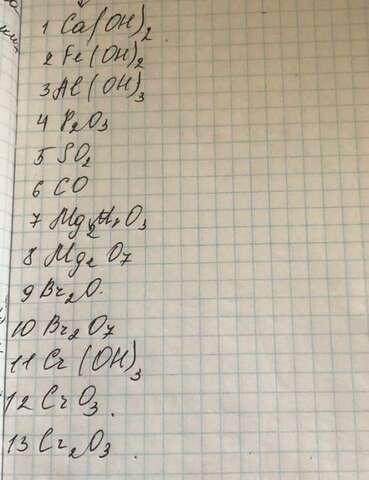 1 Ca(OH)₂
2 Fe(OH)₂
3 Al(OH)₃
4 P₂O₃
5 SO₂
6 CO
7 Mg₂O₃
8 Mg₂O₇
9 Br₂O.
10 Br₂O₇
11 Cr(OH)₃
12 CrO₃.
13 Cr₂O₃.